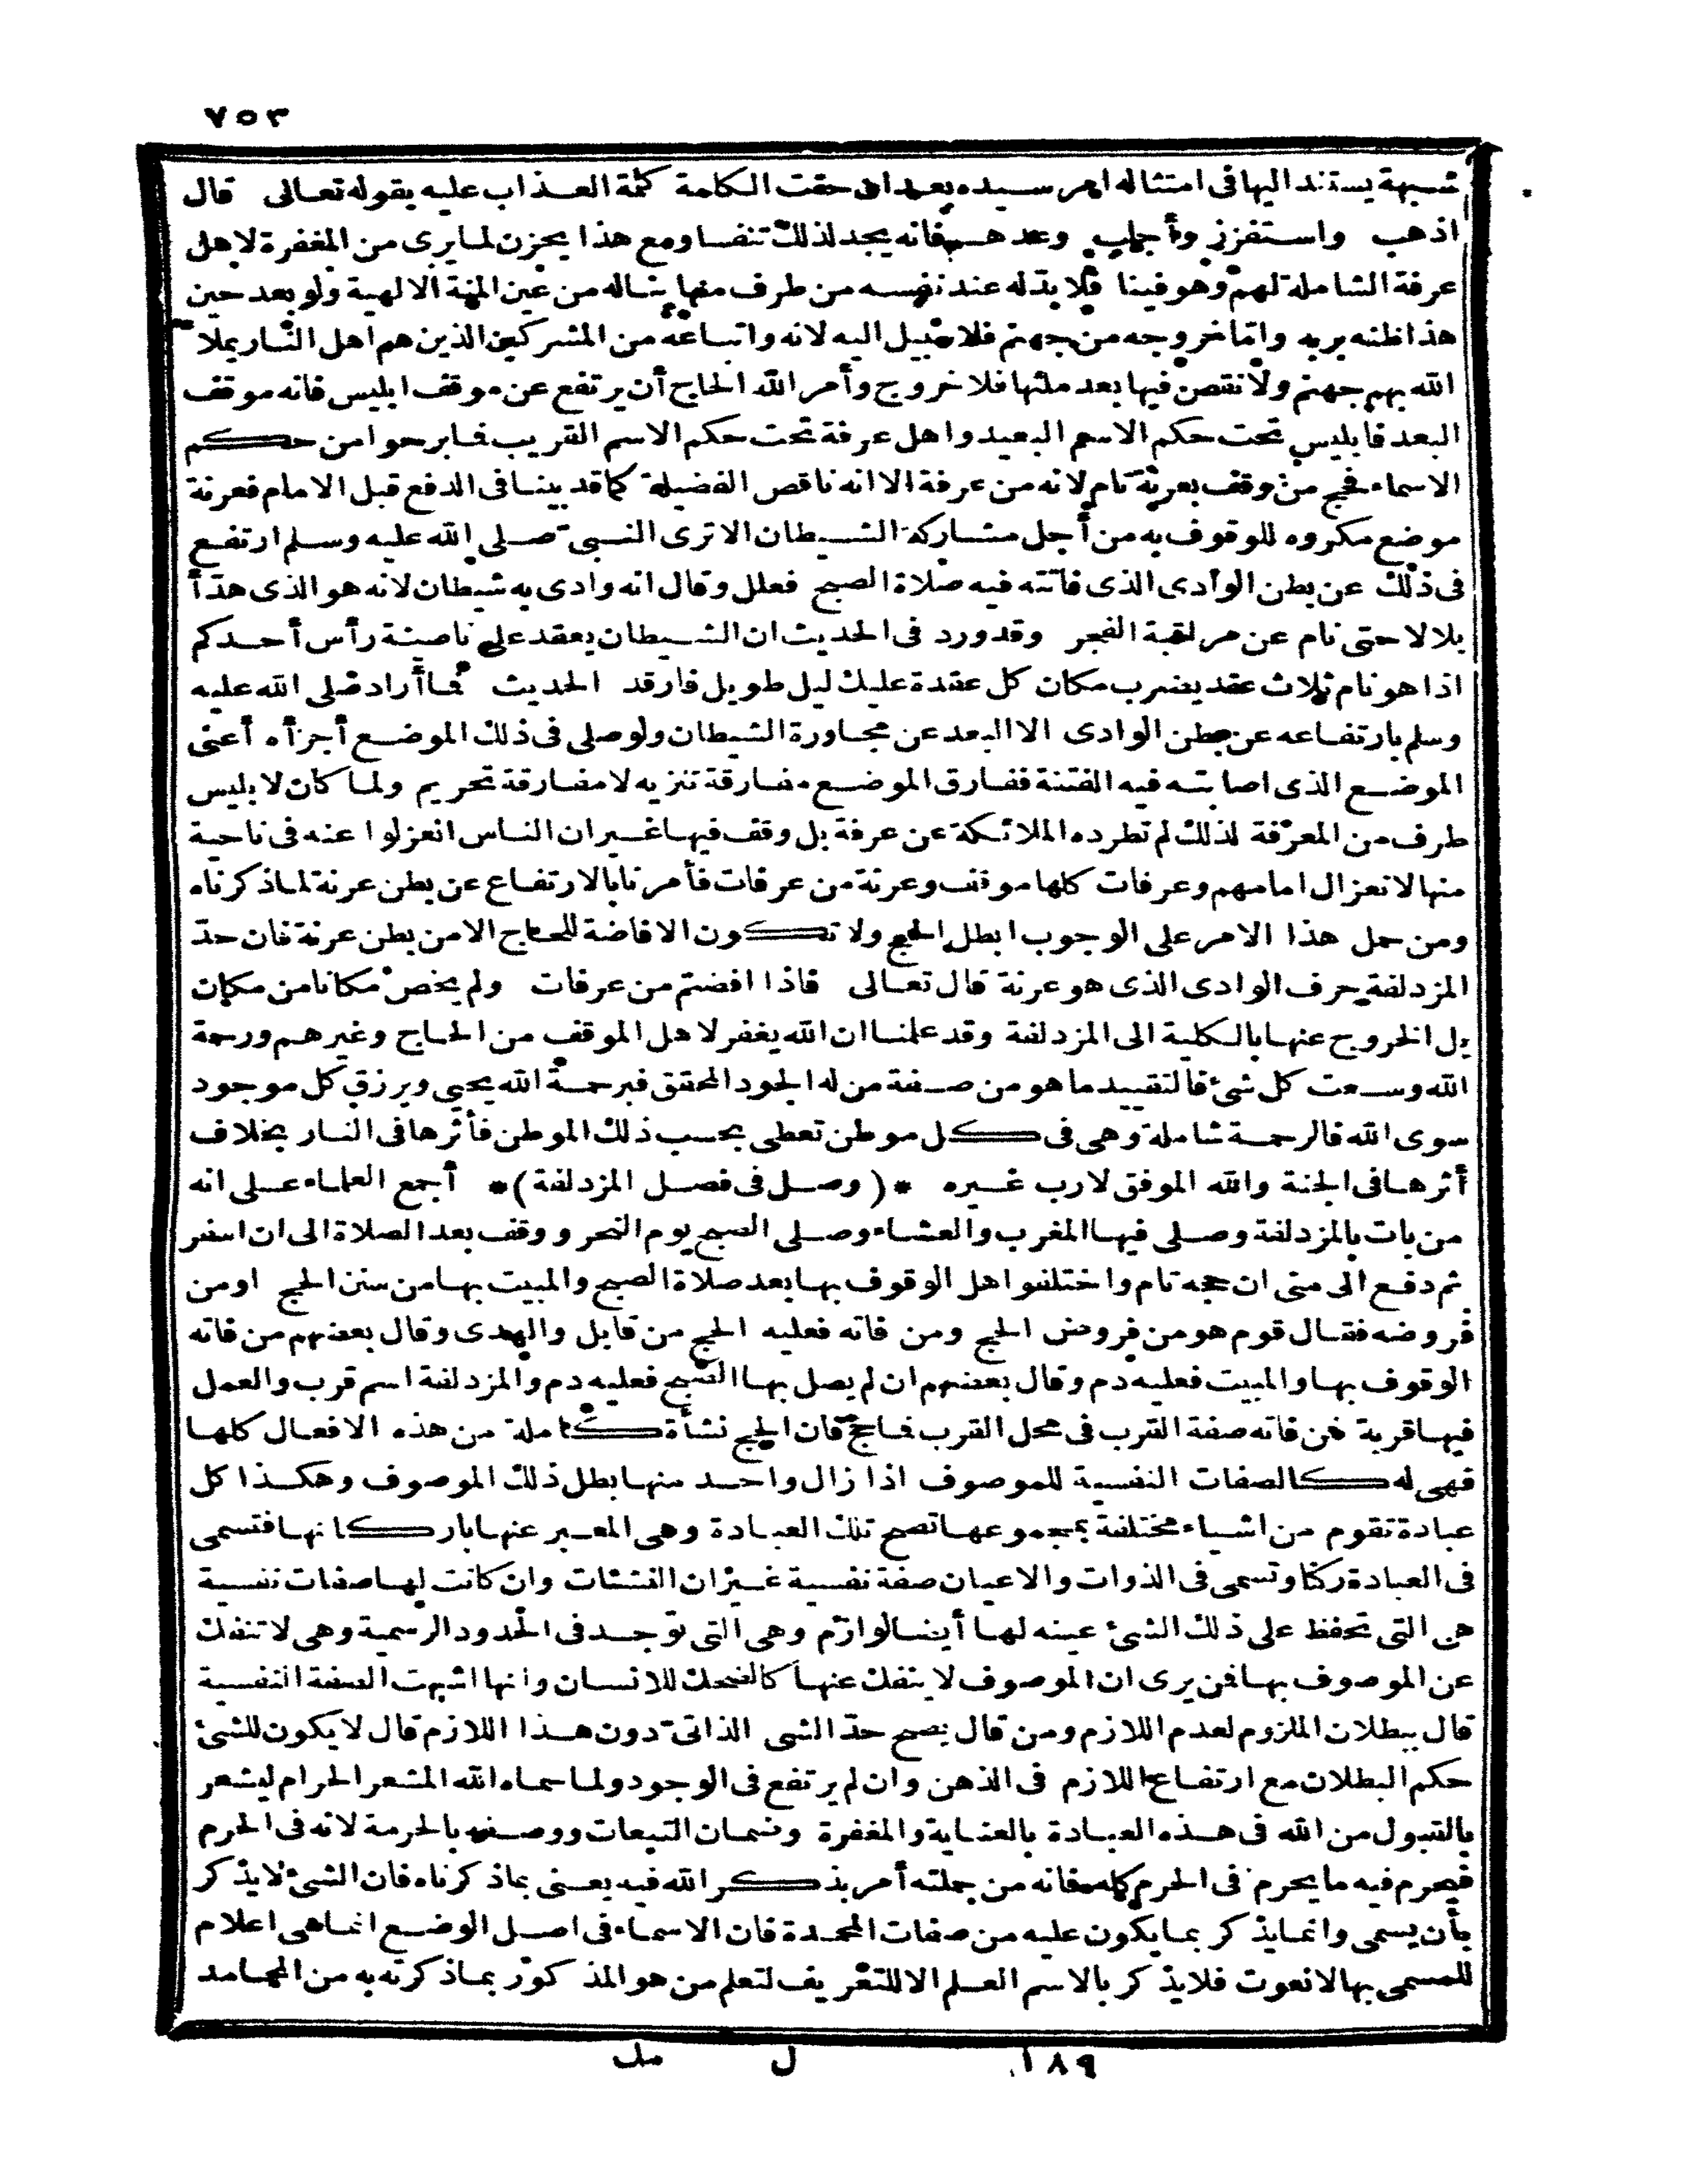 ٧٥٣
شبهة يستند اليها فى امتثاله امر سيده بعد ان حقت الكلمة كلمة العذاب عليه بقوله تعالى قال
اذهب واستفزز وأجلب وعدهم فانه يجد لذلك تنفسا ومع هذا يحزن لما يرى من المغفرة لاهل
عرفة الشاملة لهم وهو فينا فلا بدّ له عند نفسه من طرف منها يناله من عين المنة الالهية ولو بعد حين
هذا ظنه بربه وامّا خروجه من جهنم فلا سبيل اليه لانه واتباعه من المشركين الذين هم اهل النار يملا
الله بهم جهنم ولا نقص فيها بعد ملئها فلا خروج وأمر الله الحاج أن يرتفع عن موقف ابليس فانه موقف
البعد فابليس تحت حكم الاسم البعيد واهل عرفة تحت حكم الاسم القريب فما برحوا من حكم
الاسماء فحج من وقف بعرنة تام لانه من عرفة الا انه ناقص الفضيلة كما قد بينا فى الدفع قبل الامام فعرنة
موضع مكروه للوقوف به من أجل مشاركة الشيطان الا ترى النبىّ صلى الله عليه وسلم ارتفع
فى ذلك عن بطن الوادى الذى فاتته فيه صلاة الصبح فعلل وقال انه وادى به شيطان لانه هو الذى هدّأ
بلالا حتى نام عن مراقبة الفجر وقد ورد فى الحديث ان الشيطان يعقد على ناصية رأس أحدكم
اذا هو نام ثلاث عقد يضرب مكان كل عقدة عليك ليل طويل فارقد الحديث فما أراد صلى الله عليه
وسلم بارتفاعه عن بطن الوادى الا البعد عن مجاورة الشيطان ولو صلى فى ذلك الموضع أجزأه أعنى
الموضع الذى اصابته فيه الفتنة ففارق الموضع مفارقة تنزيه لا مفارقة تحريم ولما كان لابليس
طرف من المعرفة لذلك لم تطرده الملائكة عن عرفة بل وقف فيها غير ان الناس انعزلوا عنه فى ناحية
منها لانعزال امامهم وعرفات كلها موقف وعرنة من عرفات فأمرنا بالارتفاع عن بطن عرنة لما ذكرناه
ومن حمل هذا الامر على الوجوب ابطل الحج ولا تكون الافاضة للحاج الا من بطن عرنة فان حدّ
المزدلفة حرف الوادى الذى هو عرنة قال تعالى فاذا افضتم من عرفات ولم يخص مكانا من مكان
بل الخروج عنها بالكلية الى المزدلفة وقد علمنا ان الله يغفر لاهل الموقف من الحاج وغيرهم ورحمة
الله وسعت كل شئ فالتقييد ما هو من صفة من له الجود المحقق فبرحمة الله يحيى ويرزق كل موجود
سوى الله فالرحمة شاملة وهى فى كل موطن تعطى بحسب ذلك الموطن فأثرها فى النار بخلاف
أثرها فى الجنة والله الموفق لا رب غيره * (وصل فى فصل المزدلفة) * أجمع العلماء على انه
من بات بالمزدلفة وصلى فيها المغرب والعشاء وصلى الصبح يوم النحر ووقف بعد الصلاة الى ان اسفر
ثم دفع الى منى ان حجه تام واختلفوا هل الوقوف بها بعد صلاة الصبح والمبيت بها من سنن الحج او من
فروضه فقال قوم هو من فروض الحج ومن فاته فعليه الحج من قابل والهدى وقال بعضهم من فاته
الوقوف بها والمبيت فعليه دم وقال بعضهم ان لم يصل بها الصبح فعليه دم والمزدلفة اسم قرب والعمل
فيها قربة فمن فاته صفة القرب فى محل القرب فما حج فان الحج نشأة كاملة من هذه الافعال كلها
فهى له كالصفات النفسية للموصوف اذا زال واحد منها بطل ذلك الموصوف وهكذا كل
عبادة تقوم من اشياء مختلفة بمجموعها تصح تلك العبادة وهى المعبر عنها باركانها فتسمى
فى العبادة ركنا وتسمى فى الذوات والاعيان صفة نفسية غير ان النشئات وان كانت لها صفات نفسية
هى التى تحفظ على ذلك الشئ عينه لها أيضا لوازم وهى التى توجد فى الحدود الرسمية وهى لا تنفك
عن الموصوف بها فمن يرى ان الموصوف لا ينفك عنها كالضحك للانسان وانها اشبهت الصفة النفسية
قال ببطلان الملزوم لعدم اللازم ومن قال يصح حدّ الشى الذاتىّ دون هذا اللازم قال لا يكون للشئ
حكم البطلان مع ارتفاع اللازم فى الذهن وان لم يرتفع فى الوجود ولما سماه الله المشعر الحرام ليشعر
بالقبول من الله فى هذه العبادة بالعناية والمغفرة وضمان التبعات ووصفه بالحرمة لانه فى الحرم
فيحرم فيه ما يحرم فى الحرم كله فانه من جملته أمر بذكر الله فيه يعنى بما ذكرناه فان الشئ لا يذكر
بأن يسمى وانما يذكر بما يكون عليه من صفات المحمدة فان الاسماء فى اصل الوضع انما هى اعلام
للمسمى بها لا نعوت فلا يذكر بالاسم العلم الا للتعريف لتعلم من هو المذكور بما ذكرته به من المحامد
١٨٩ ل مك